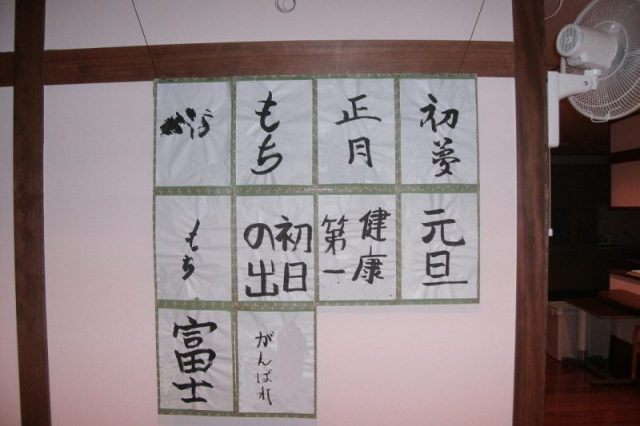 初夢
正月
もち
元旦
健康
第一
初日
の出
もち
がんばれ
富士